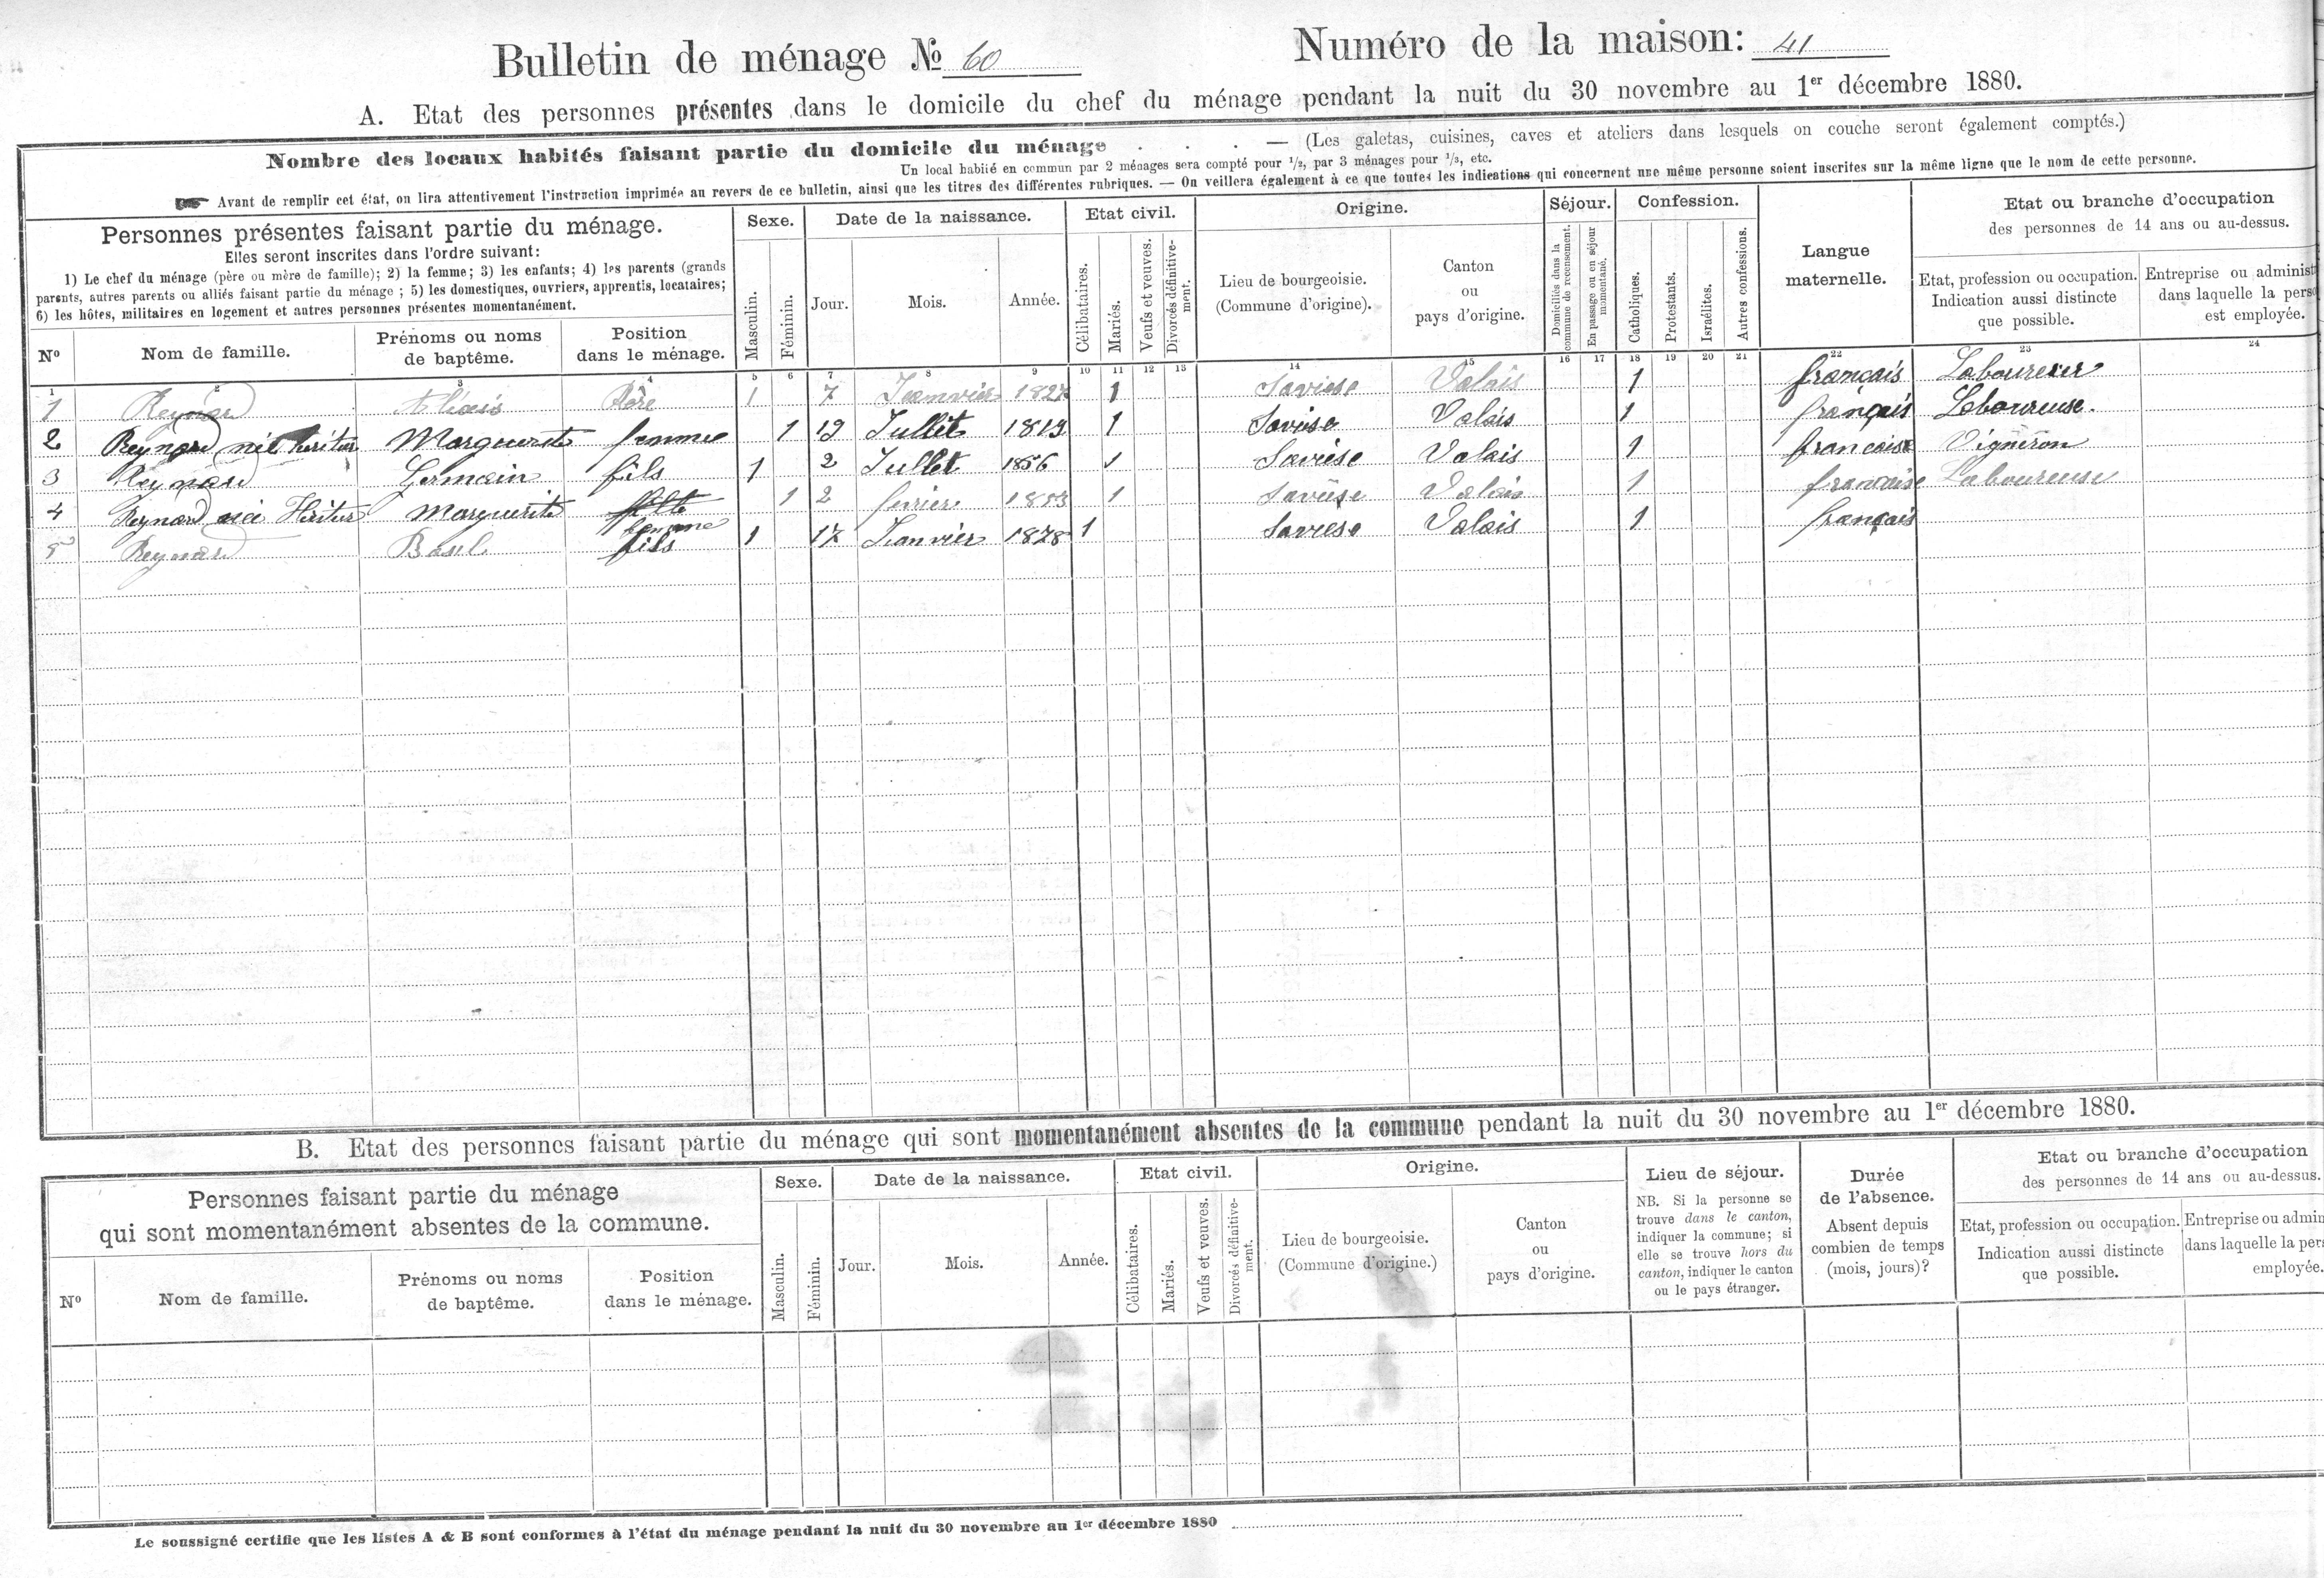 Bulletin de ménage № 60
Numéro de la maison: 41
A. Etat des personnes présentes dans le domicile du chef du ménage pendant la nuit du 30 novembre au 1er décembre 1880.
Nombre des locaux habités faisant partie du domicile du ménage . . . — (Les galetas, cuisines, caves et ateliers dans lesquels on couche seront également comptés.)
Un local habité en commun par 2 ménages sera compté pour 1/2, par 3 ménages pour 1/3, etc.
Avant de remplir cet état, on lira attentivement l'instruction imprimée au revers de ce bulletin, ainsi que les titres des différentes rubriques. — On veillera également à ce que toutes les indications qui concernent une même personne soient inscrites sur la même ligne que le nom de cette personne.
Personnes présentes faisant partie du ménage.
Elles seront inscrites dans l'ordre suivant:
1) Le chef du ménage (père ou mère de famille); 2) la femme; 3) les enfants; 4) les parents (grands
parents, autres parents ou alliés faisant partie du ménage ; 5) les domestiques, ouvriers, apprentis, locataires;
6) les hôtes, militaires en logement et autres personnes présentes momentanément.
Nº
Nom de famille.
Prénoms ou noms
de baptême.
Position
dans le ménage.
Sexe.
Masculin.
Féminin.
Date de la naissance.
Jour.
Mois.
Année.
Etat civil.
Célibataires.
Mariés.
Veufs et veuves.
Divorcés définitive-
ment.
Origine.
Lieu de bourgeoisie.
(Commune d'origine).
Canton
ou
pays d'origine.
Séjour.
Domiciliés dans la
commune de recensement.
En passage ou en séjour
momentané.
Confession.
Catholiques.
Protestants.
Israélites.
Autres confessions.
Langue
maternelle.
Etat ou branche d'occupation
des personnes de 14 ans ou au-dessus.
Etat, profession ou occupation.
Indication aussi distincte
que possible.
Entreprise ou administ
dans laquelle la perso
est employée.
1 2 3 4 5 6 7 8 9 10 11 12 13 14 15 16 17 18 19 20 21 22 23 24
1 Reynard Père 1 7 Jeanvier 1 Saviese Valais 1 français Laboureur
2 Reynard Marguerite femme 1 19 Jullet 1819 1 Saviese Valais 1 français Laboureuse.
3 Reynard Germain fils 1 2 Jullet 1856 1 Saviese Valais 1 francaise Vigneron
4 Reynard Marguerite fille femme 1 2 fevrier 1 Saviese Valais 1 francaise Laboureuse
5 Reynard Basil fils 1 17 Janvier 1878 1 Saviese Valais 1 français
B. Etat des personnes faisant partie du ménage qui sont momentanément absentes de la commune pendant la nuit du 30 novembre au 1er décembre 1880.
Personnes faisant partie du ménage
qui sont momentanément absentes de la commune.
Nº
Nom de famille.
Prénoms ou noms
de baptême.
Position
dans le ménage.
Sexe.
Masculin.
Féminin.
Date de la naissance.
Jour.
Mois.
Année.
Etat civil.
Célibataires.
Mariés.
Veufs et veuves.
Divorcés définitive-
ment.
Origine.
Lieu de bourgeoisie.
(Commune d'origine.)
Canton
ou
pays d'origine.
Lieu de séjour.
NB. Si la personne se
trouve dans le canton,
indiquer la commune; si
elle se trouve hors du
canton, indiquer le canton
ou le pays étranger.
Durée
de l'absence.
Absent depuis
combien de temps
(mois, jours)?
Etat ou branche d'occupation
des personnes de 14 ans ou au-dessus.
Etat, profession ou occupation.
Indication aussi distincte
que possible.
Entreprise ou admin
dans laquelle la pers
employée.
Le soussigné certifie que les listes A & B sont conformes à l'état du ménage pendant la nuit du 30 novembre au 1er décembre 1880